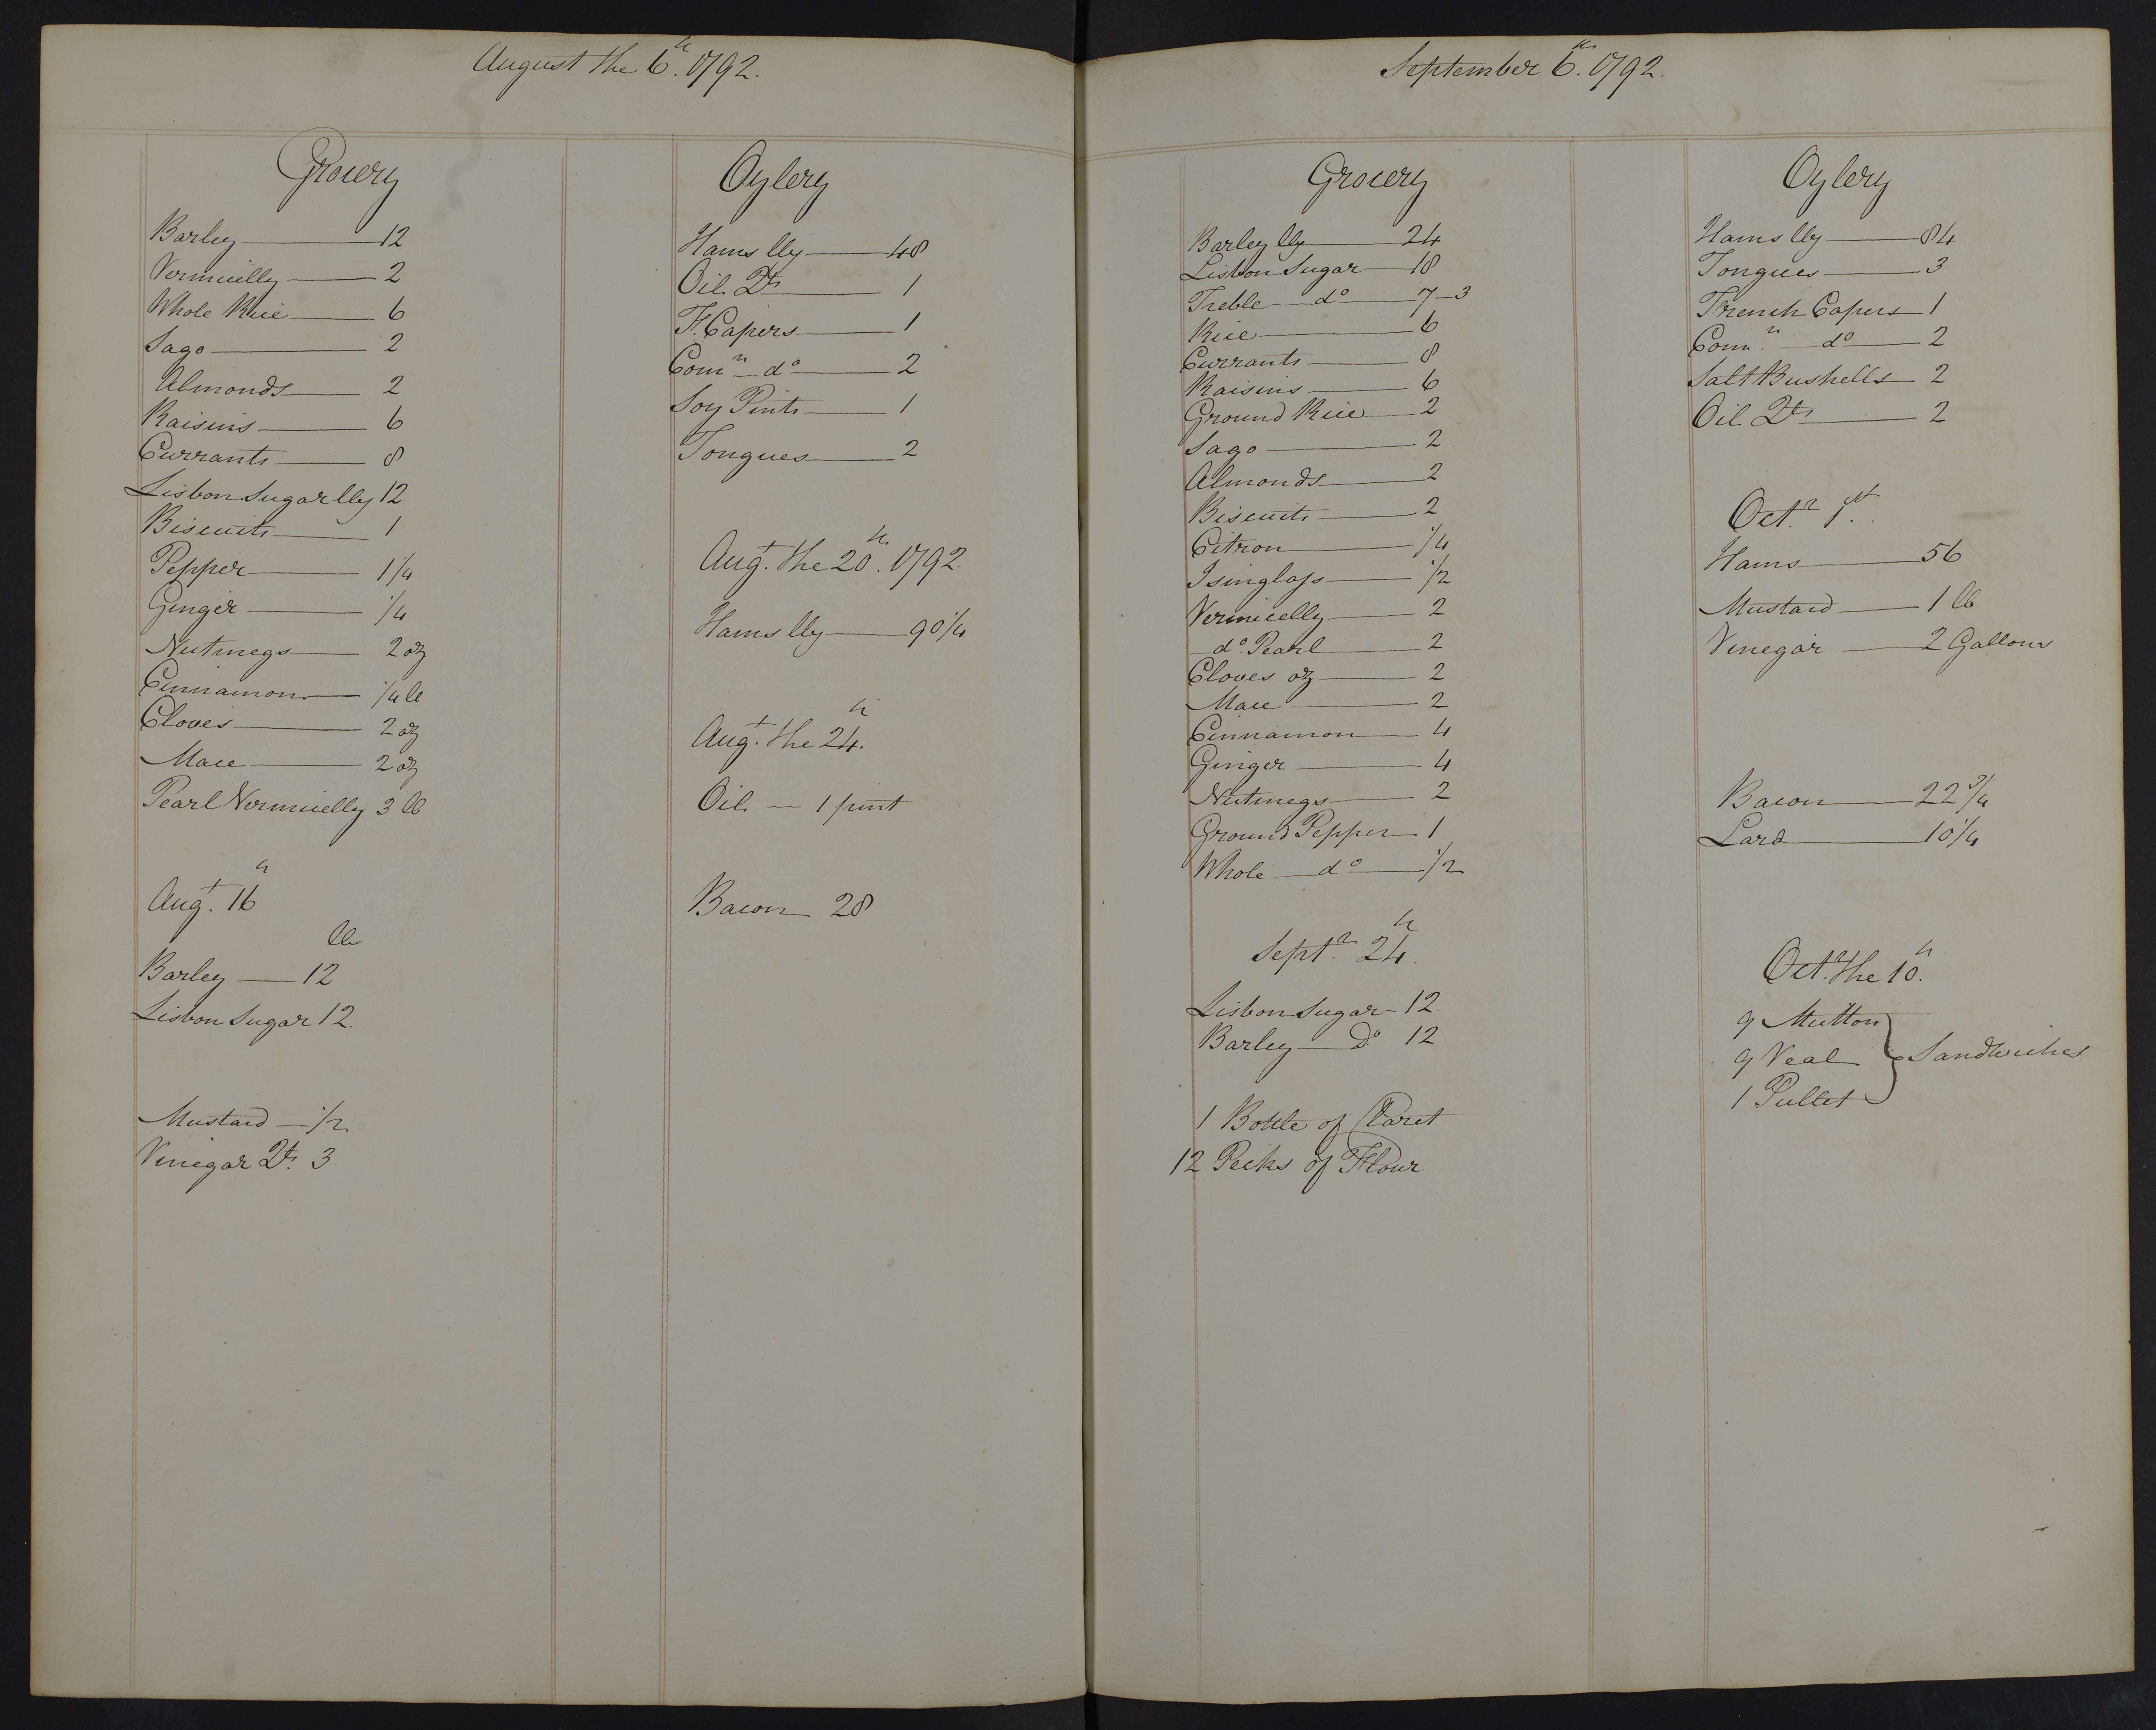 August the 6th. 1792.
Grocery
Barley 12
Vermicelly 2
Whole Rice 6
Sago 2
Almonds 2
Raisins 6
Currants 8
Lisbon Sugar lb 12
Biscuits 1
Pepper 1 1/4
Ginger 1/4
Nutmegs 2 oz
Cinnamon 1/4 lb
Cloves 2 oz
Mace 2 oz
Pearl Vermicelly 3 lb
Augt. 16th
lb
Barley 12
Lisbon Sugar 12.
Mustard 1/2
Vinegar Qts. 3
Oylery
Hams lb 48
Oil Qts 1
F. Capers 1
Comn do 2
Soy Pints 1
Tongues 2
Augt. the 20th. 1792.
Hams lb 90 1/4
Augt. the 24th.
Oil 1 pint
Bacon 28
September 6th. 1792.
Grocery
Barley lb 24
Lisbon Sugar 18
Treble do 7-3
Rice 6
Currants 8
Raisins 6
Ground Rice 2
Sago 2
Almonds 2
Biscuits 2
Citron 1/4
Isinglass 1/2
Vermicelly 2
do. Pearl 2
Cloves oz 2
Mace 2
Cinnamon 4
Ginger 4
Nutmegs 2
Ground Pepper 1
Whole do 1/2
Septr. 24th.
Lisbon Sugar 12.
Barley Do 12
1 Bottle of Claret
12 Pecks of Flour
Oylery
Hams lb 84
Tongues 3
French Capers 1
Comn. do 2
Salt Bushells 2
Oil Qts 2
Octr. 1st.
Hams 56
Mustard 1 lb
Vinegar 2 Gallons
Bacon 22 3/4
Lard 10 1/4
Octr. the 10th.
9 Mutton
9 Veal Sandwiches
1 Pullet